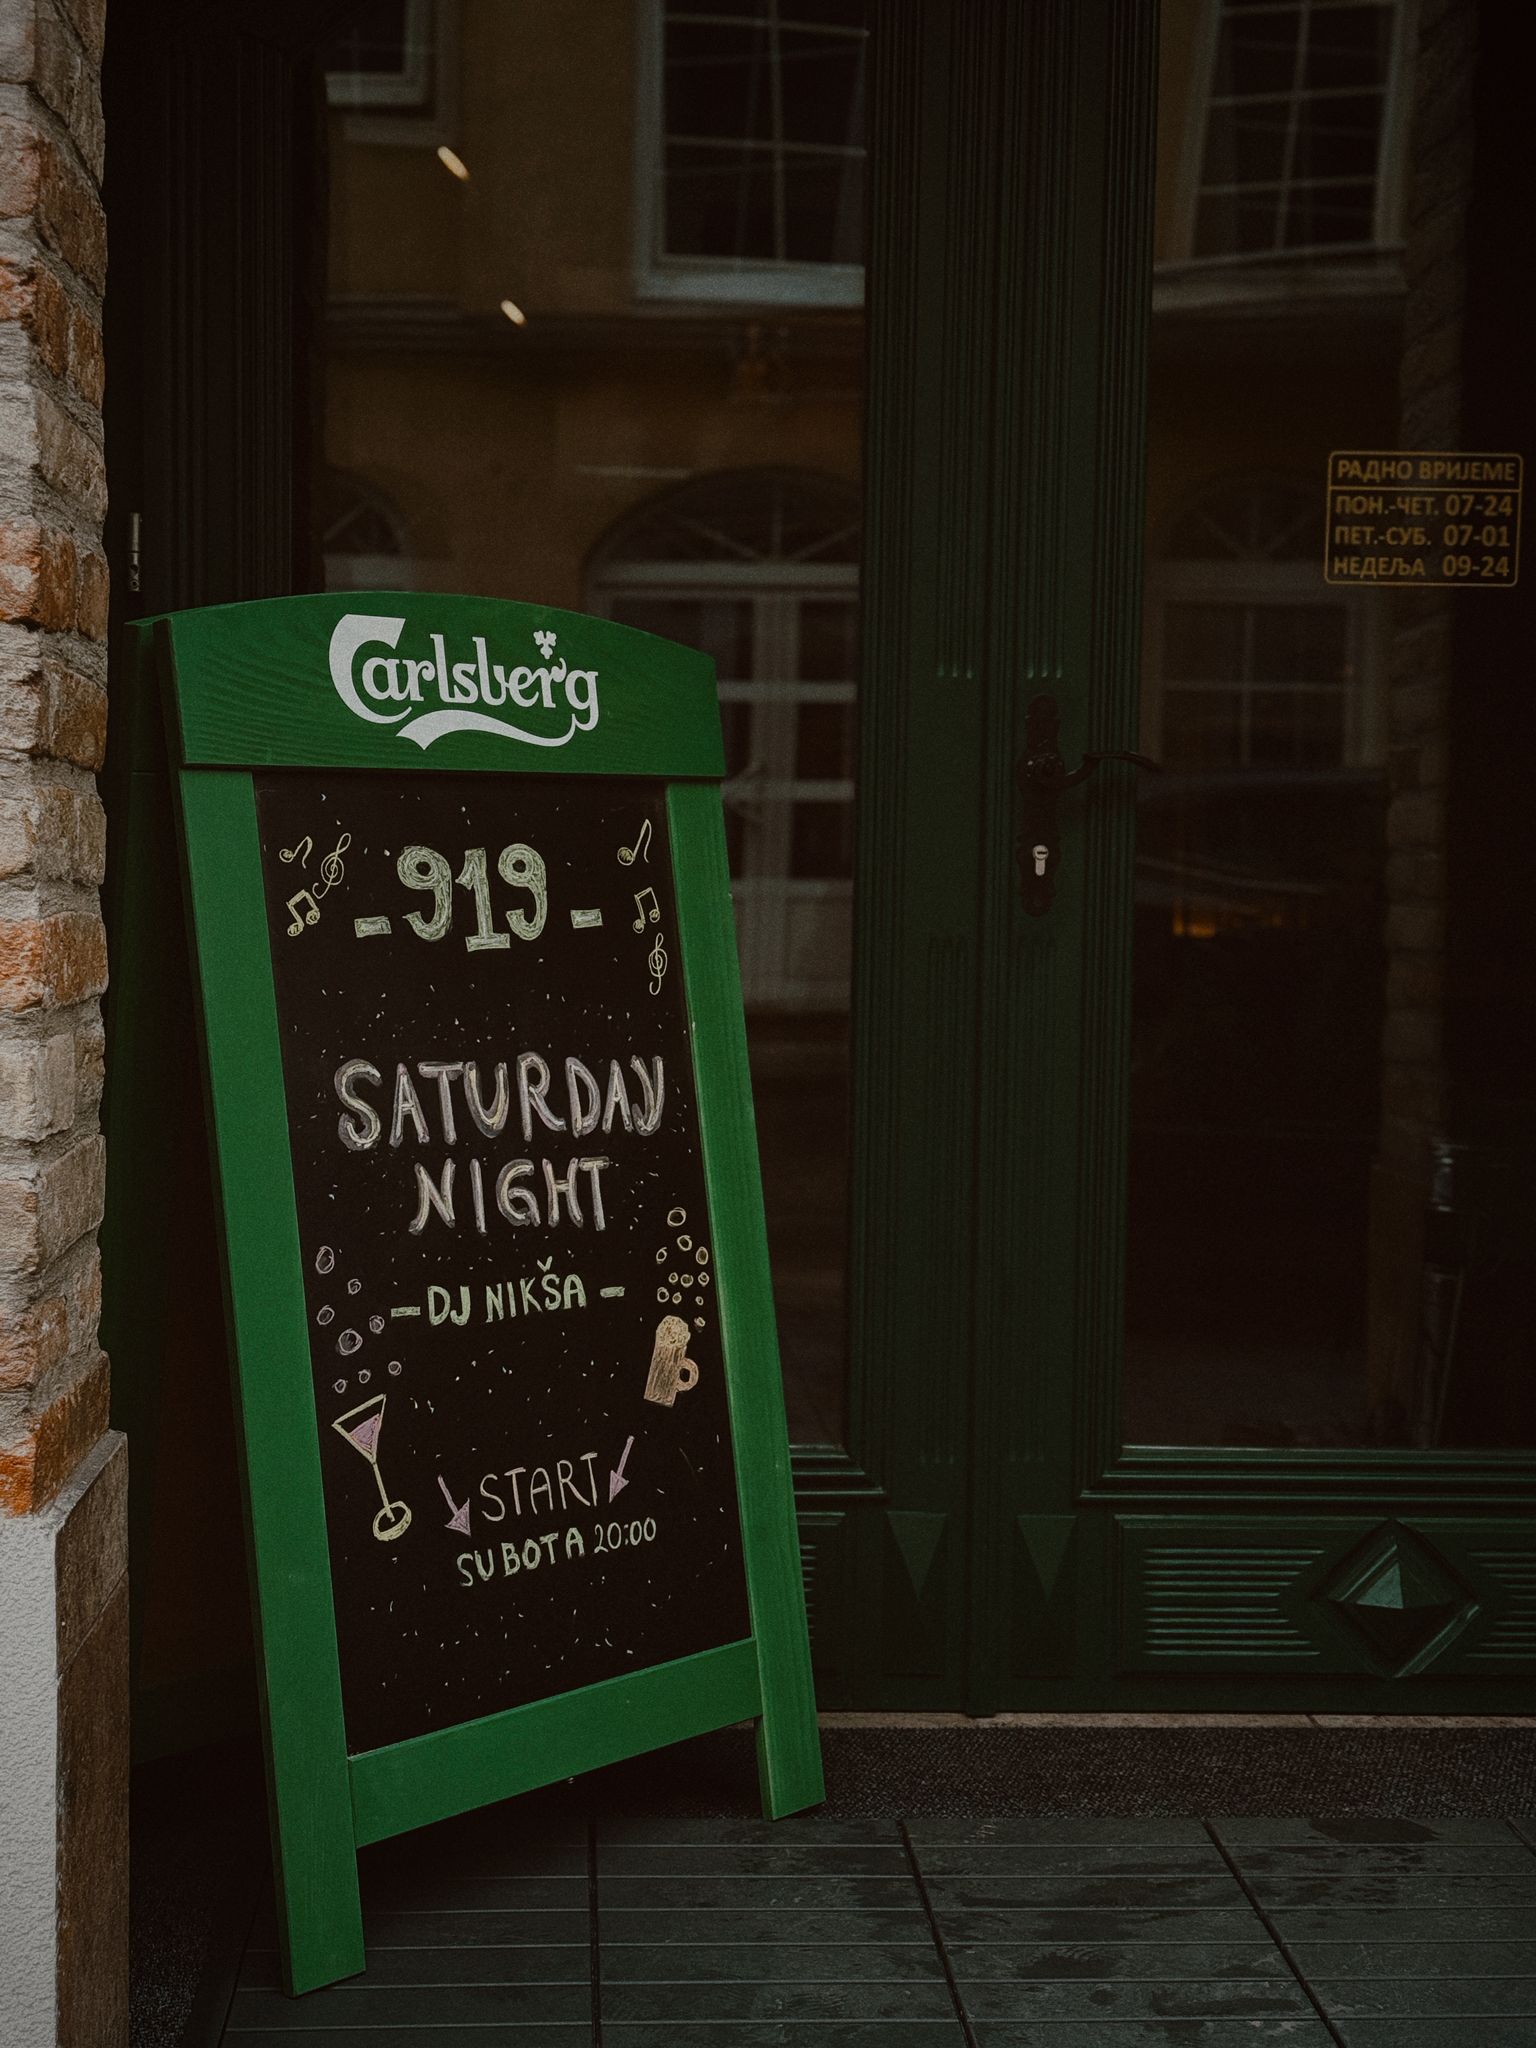 Carlsberg
- 919 -
SATURDAY
NIGHT
- DJ NIKŠA -
START
SUBOTA 20:00
РАДНО ВРИЈЕМЕ
ПОН.-ЧЕТ. 07-24
ПЕТ.-СУБ. 07-01
НЕДЕЉА 09-24